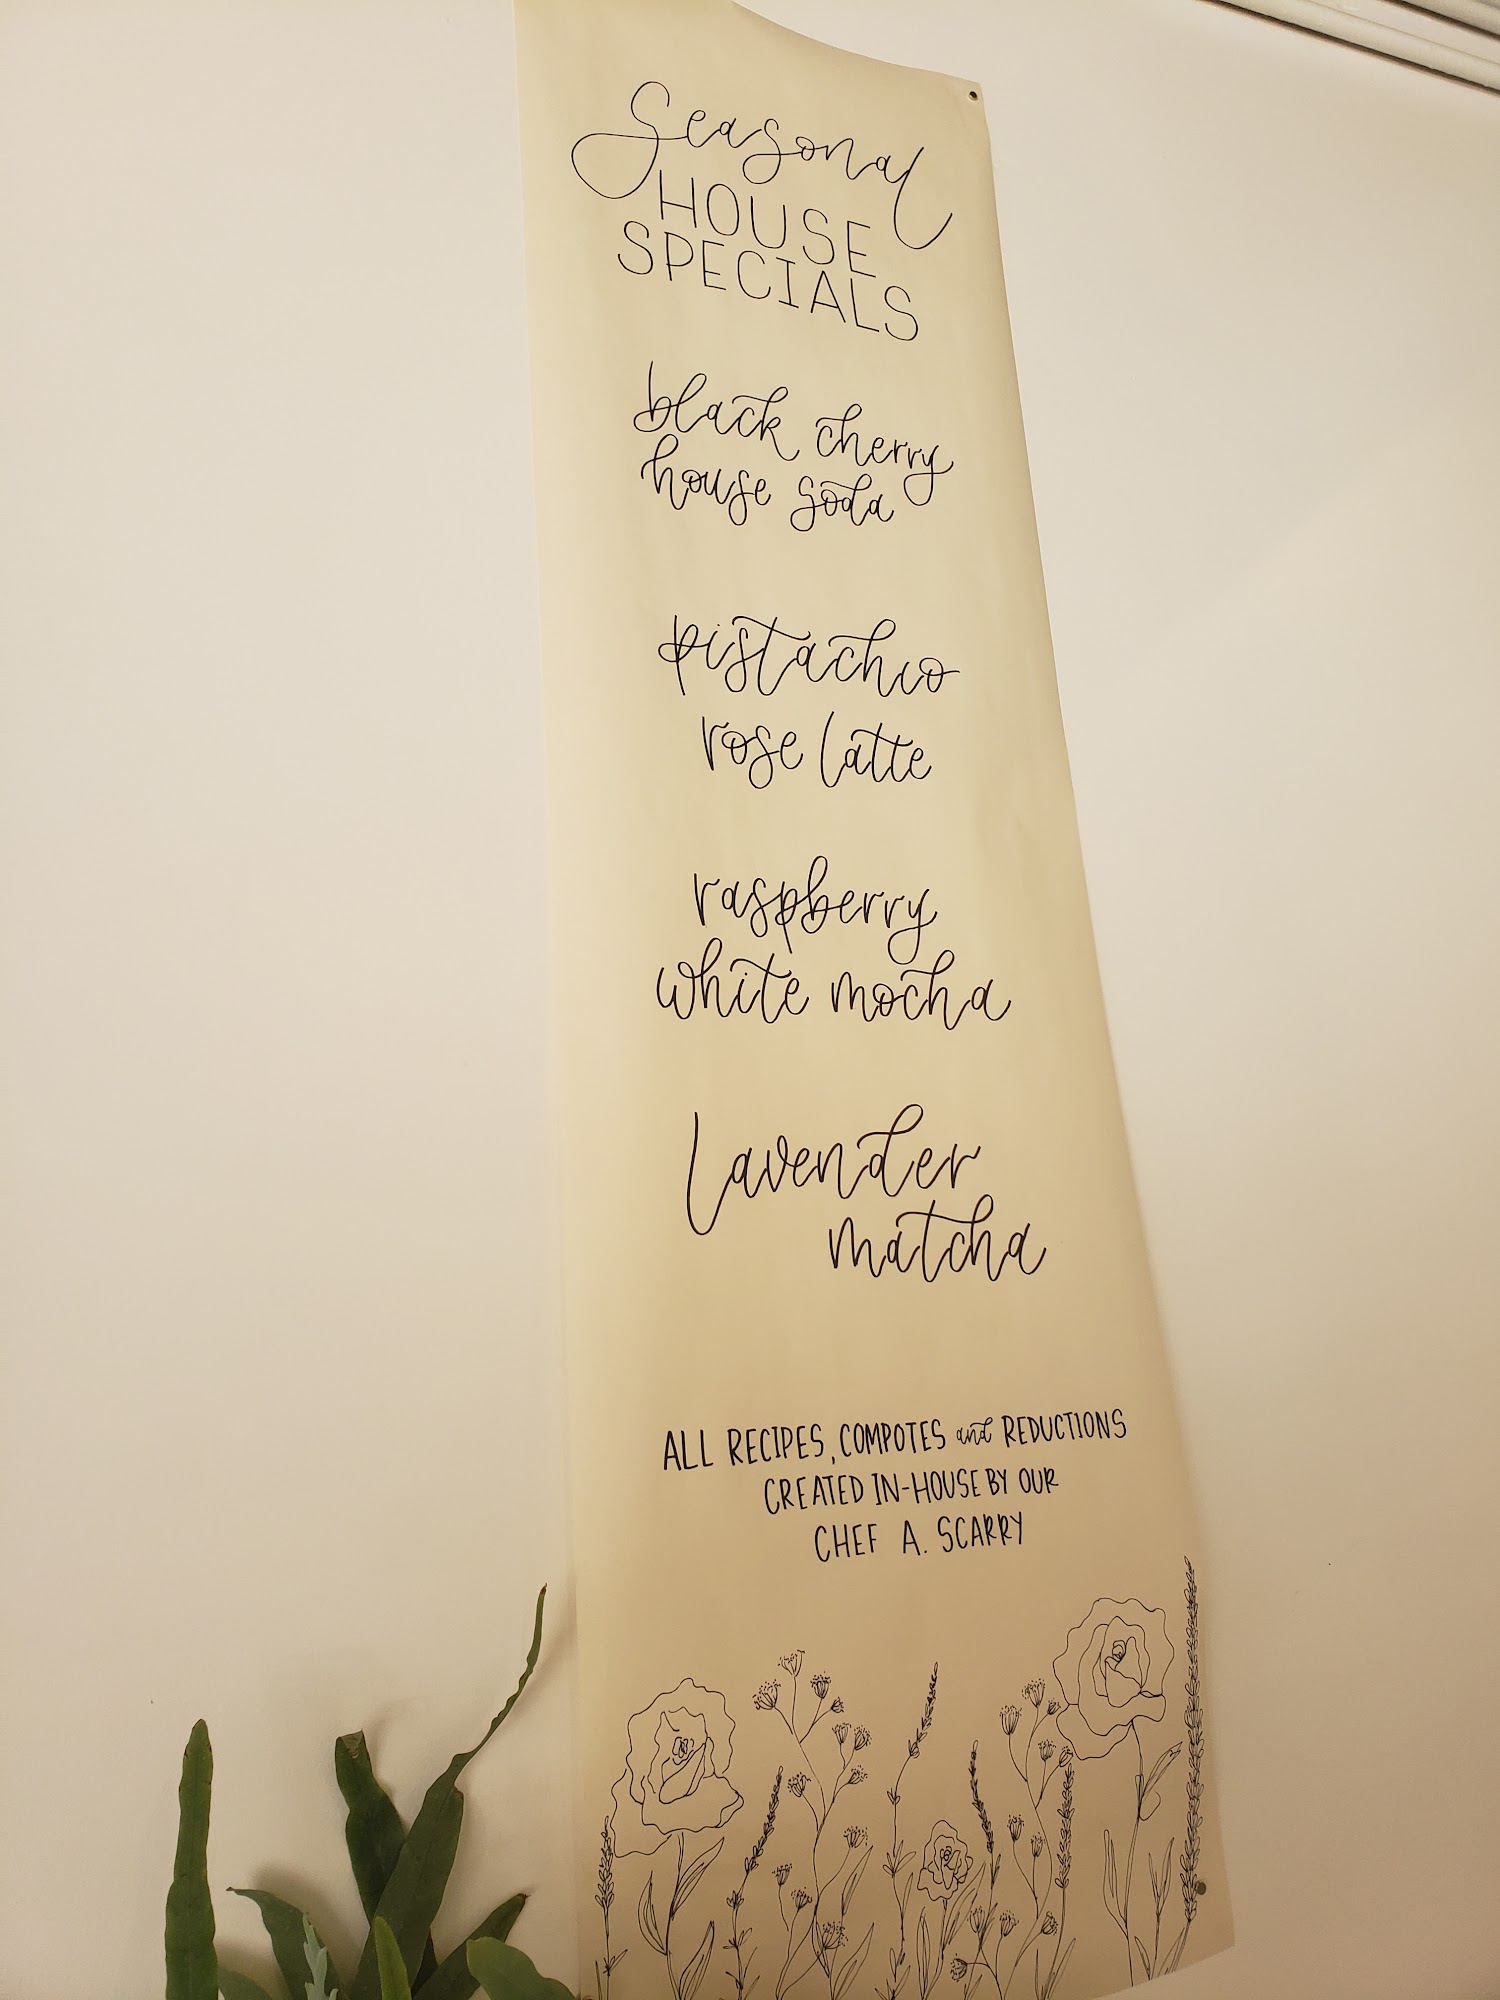 Seasonal
HOUSE
SPECIALS
black cherry
house soda
pistachio
rose latte
raspberry
white mocha
lavender
matcha
ALL RECIPES, COMPOTES and REDUCTIONS
CREATED IN-HOUSE BY OUR
CHEF A. SCARRY